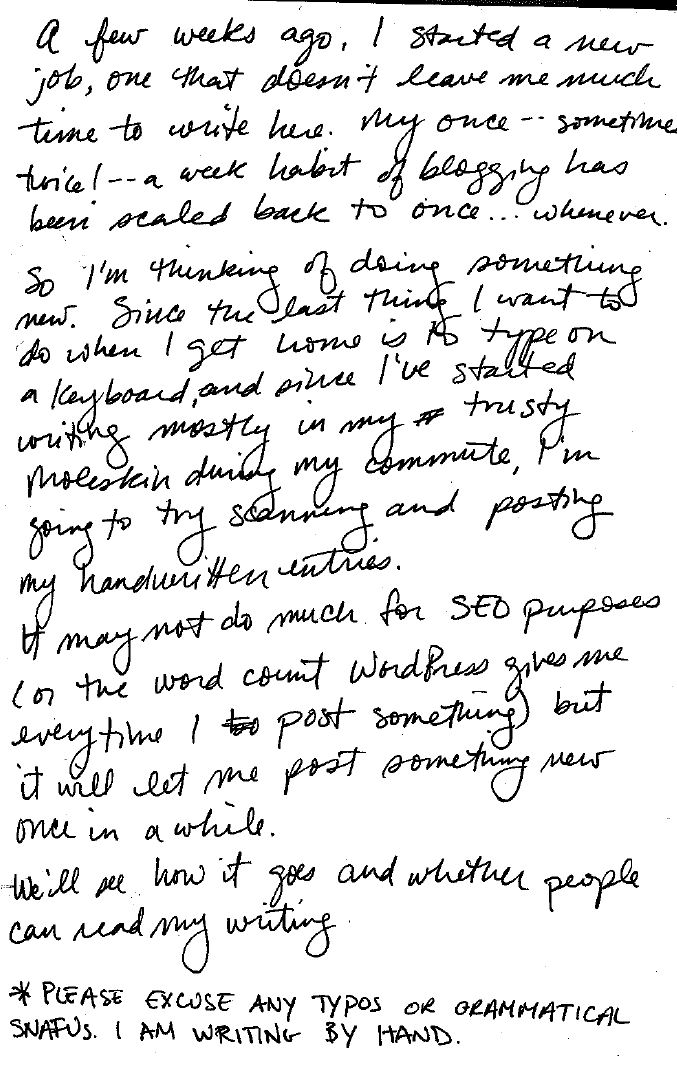 A few weeks ago, I started a new
job, one that doesn't leave me much
time to write here. My once -- sometimes
twice! -- a week habit of blogging has
been scaled back to once... whenever.
So I'm thinking of doing something
new. Since the last thing I want to
do when I get home is to type on
a keyboard, and since I've started
writing mostly in my trusty
Moleskin during my commute, I'm
going to try scanning and posting
my handwritten entries.
It may not do much for SEO purposes
(or the word count WordPress gives me
everytime I post something) but
it will let me post something new
once in a while.
We'll see how it goes and whether people
can read my writing
* PLEASE EXCUSE ANY TYPOS OR GRAMMATICAL
SNAFUS. I AM WRITING BY HAND.